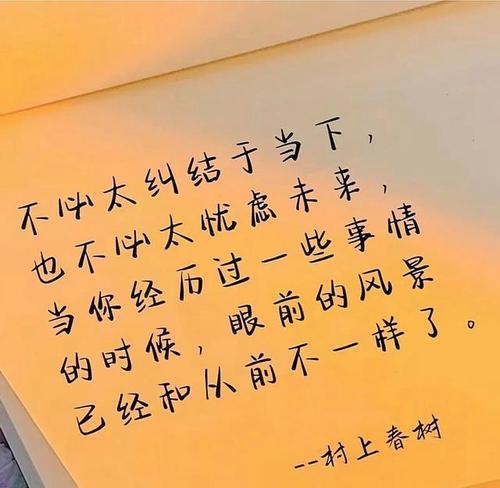 不必太纠结于当下，
也不必太忧虑未来，
当你经历过一些事情
的时候，眼前的风景
已经和从前不一样了。
--村上春树